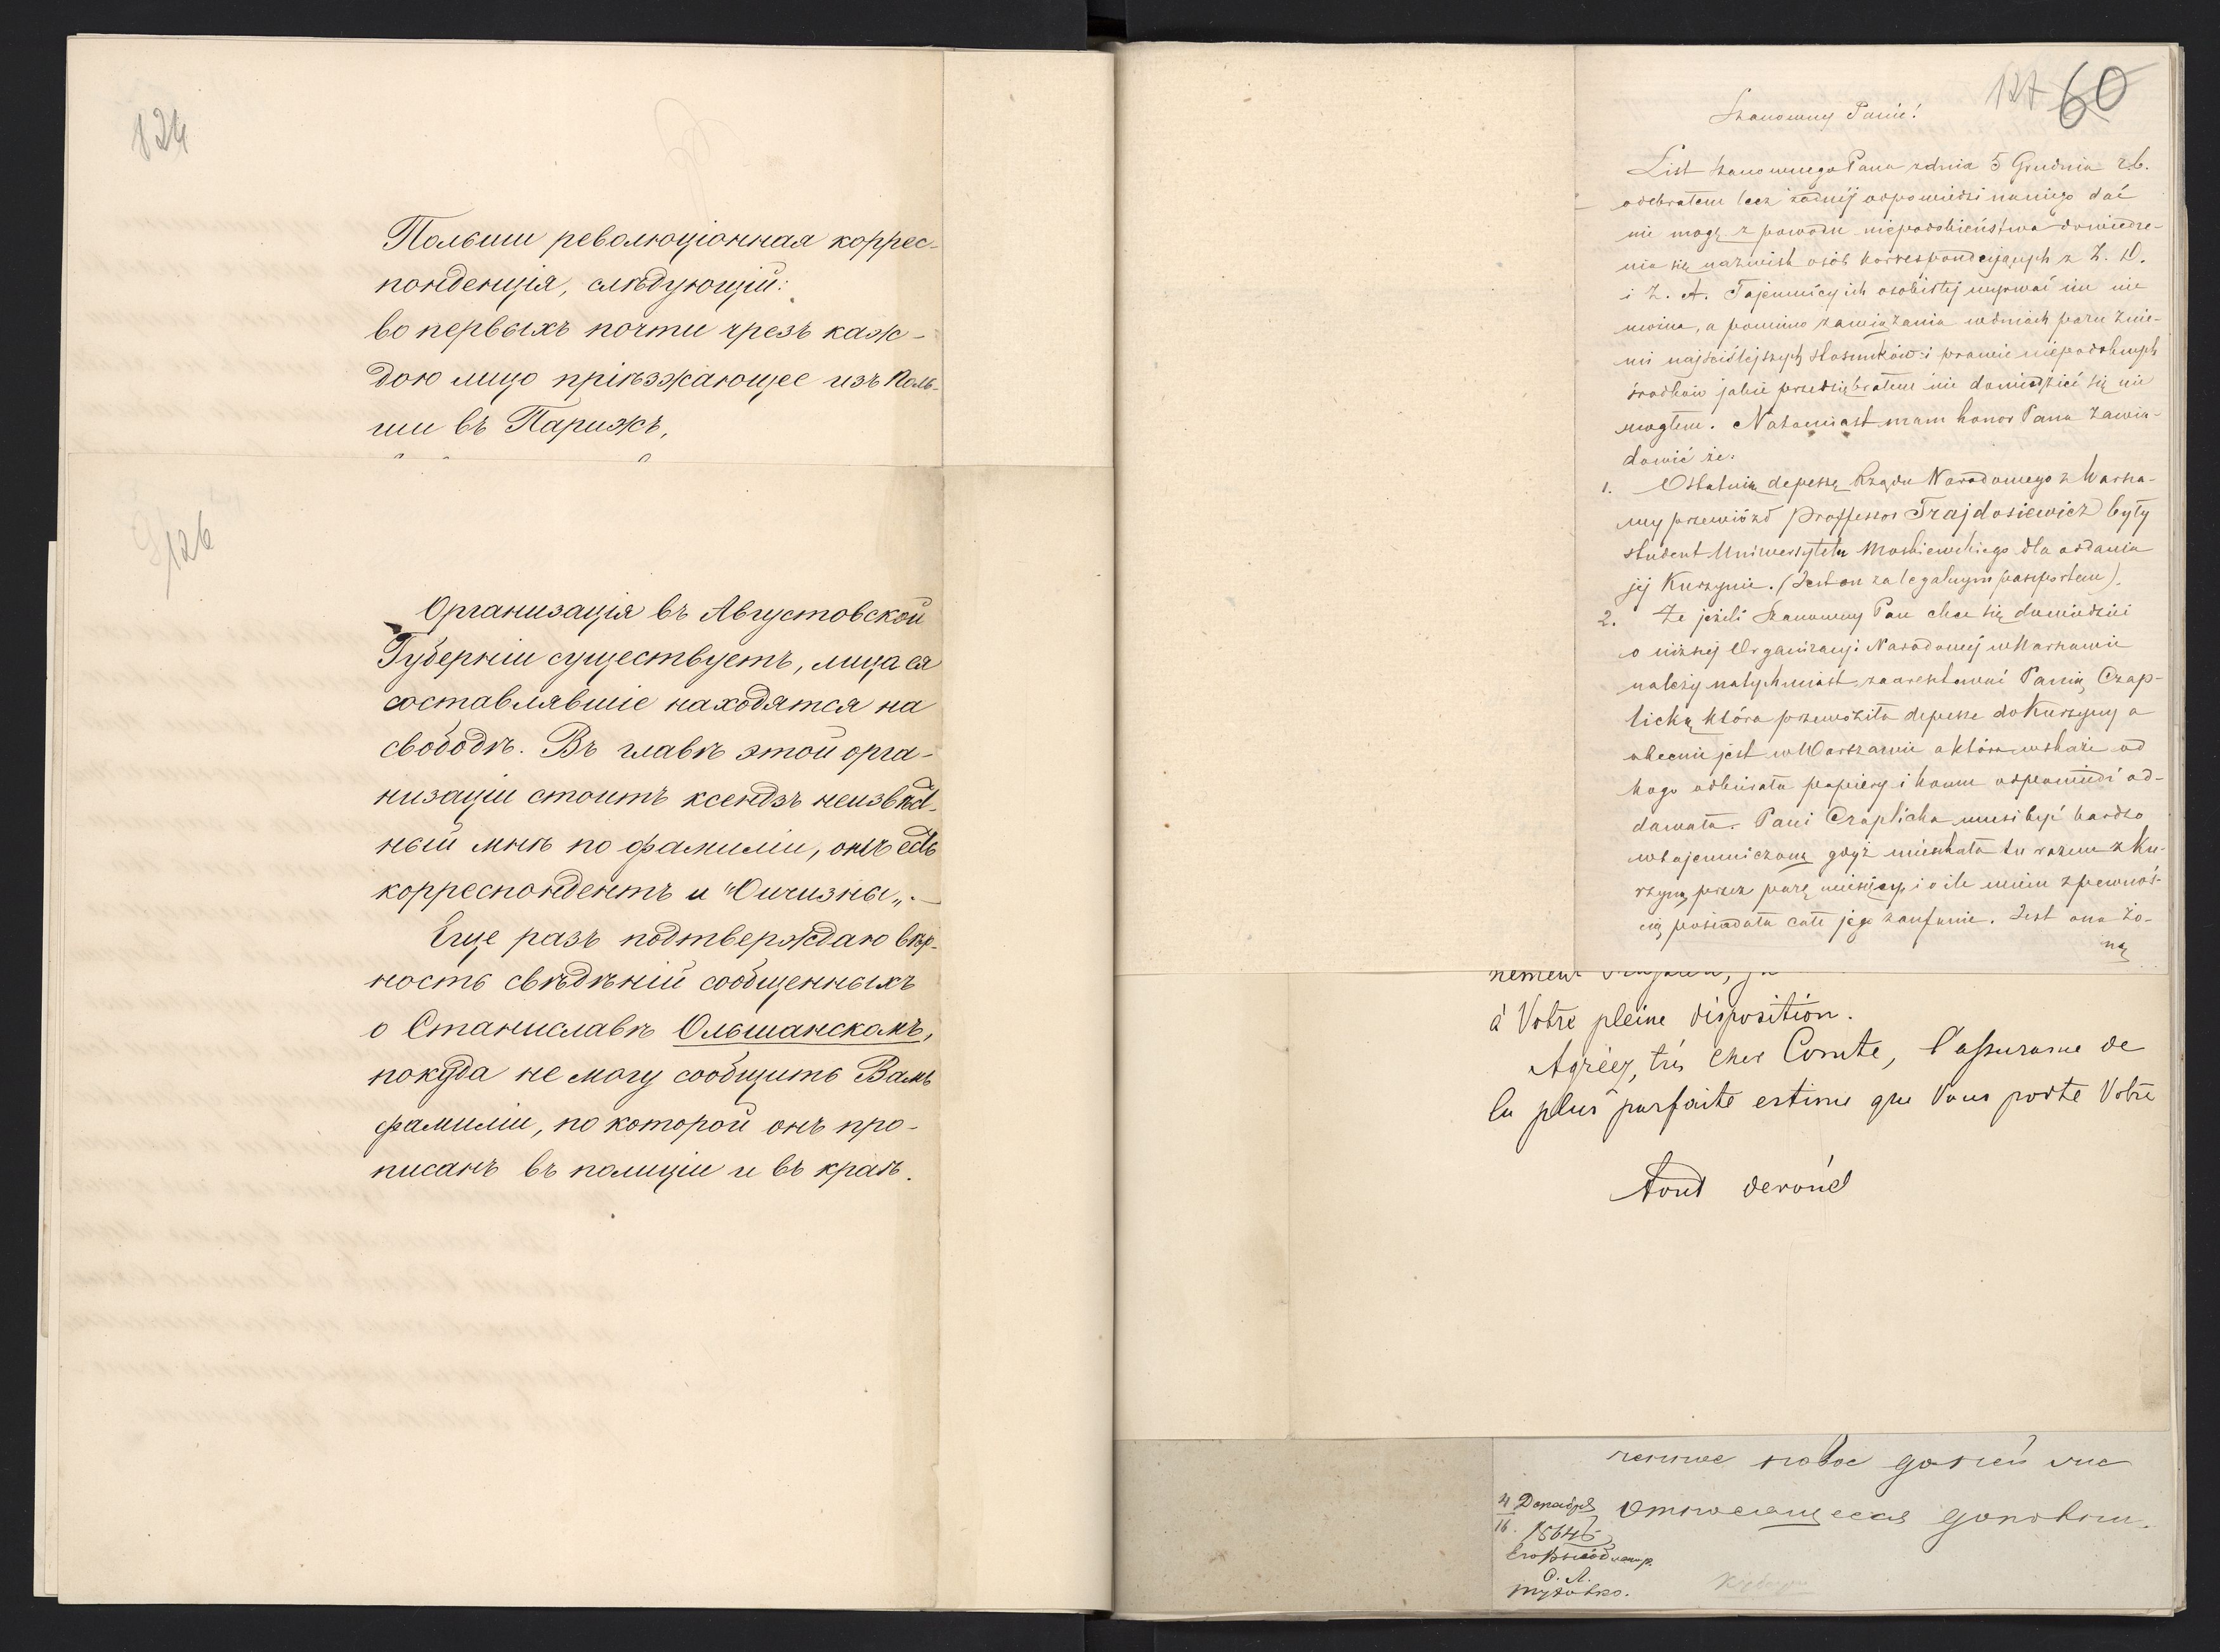 124
Польши революціонная коррес-
понденція, слѣдующій:
во первыхъ почти чрезъ каж-
дою лицо пріѣзжающее изъ Поль-
ши въ Парижъ,
126
Организація въ Августовской
Губерніи существуетъ, лица ея
составлявшіе находятся на
свободѣ. Въ главѣ этой орга-
низаціи стоитъ ксендзъ неизвѣст-
ный мнѣ по фамиліи, онъ есть
корреспондентъ и "Ойчизны„.
Еще разъ подтверждаю вѣр-
ность свѣдѣній сообщенныхъ
о Станиславѣ Ольшанскомъ,
покуда не могу сообщить Вамъ
фамиліи, по которой онъ про-
писанъ въ полиціи и въ краѣ.
127 60
Szanowny Panie!
List Szanownego Pana z dnia 5 Grudnia r.b.
odebrałem lecz żadnéj odpowiedzi na niego dać
nie mogę z powodu niepodobieństwa dowiedze-
nia się nazwisk osób korrespondujących z Z. D.
i Z. A. Tajemnicy ich osobistej wyrwać im nie
można, a pomimo zawiązania w dniach paru z nie-
mi najściślejszych stosunków i prawie niepodobnych
środków jakie przedsiębrałem nie dowiedzieć się nie
mogłem. Natomiast mam honor Pana zawia-
domić że.
1. Ostatnią depeszę Rządu Narodowego z Warsza-
wy przewiózł Professor Trajdosiewicz były
student Uniwersytetu Moskiewskiego dla oddania
jej Kurzynie. (Jest on za legalnym paszportem).
2. Że jeżeli Szanowny Pan chce się dowiedzieć
o niższej Organizacyi Narodowej w Warszawie
należy natychmiast zaaresztować Panią Czap-
licką która przewoziła depesze do Kurzyny a
obecnie jest w Warszawie a która wskaże od
kogo odbierała papiery i komu odpowiedź od-
dawała. Pani Czaplicka musi być bardzo
wtajemniczoną gdyż mieszkała tu razem z Ku-
rzyną przez parę miesięcy i o ile wiem z pewnoś-
cią posiadała całe jego zaufanie. Jest ona żo-
ną
à Votre pleine disposition.
Agréez, très cher Comte, l'assurance de
la plus parfaite estime que Vous porte Votre
tout devoué
4 Декабря
16. 1864